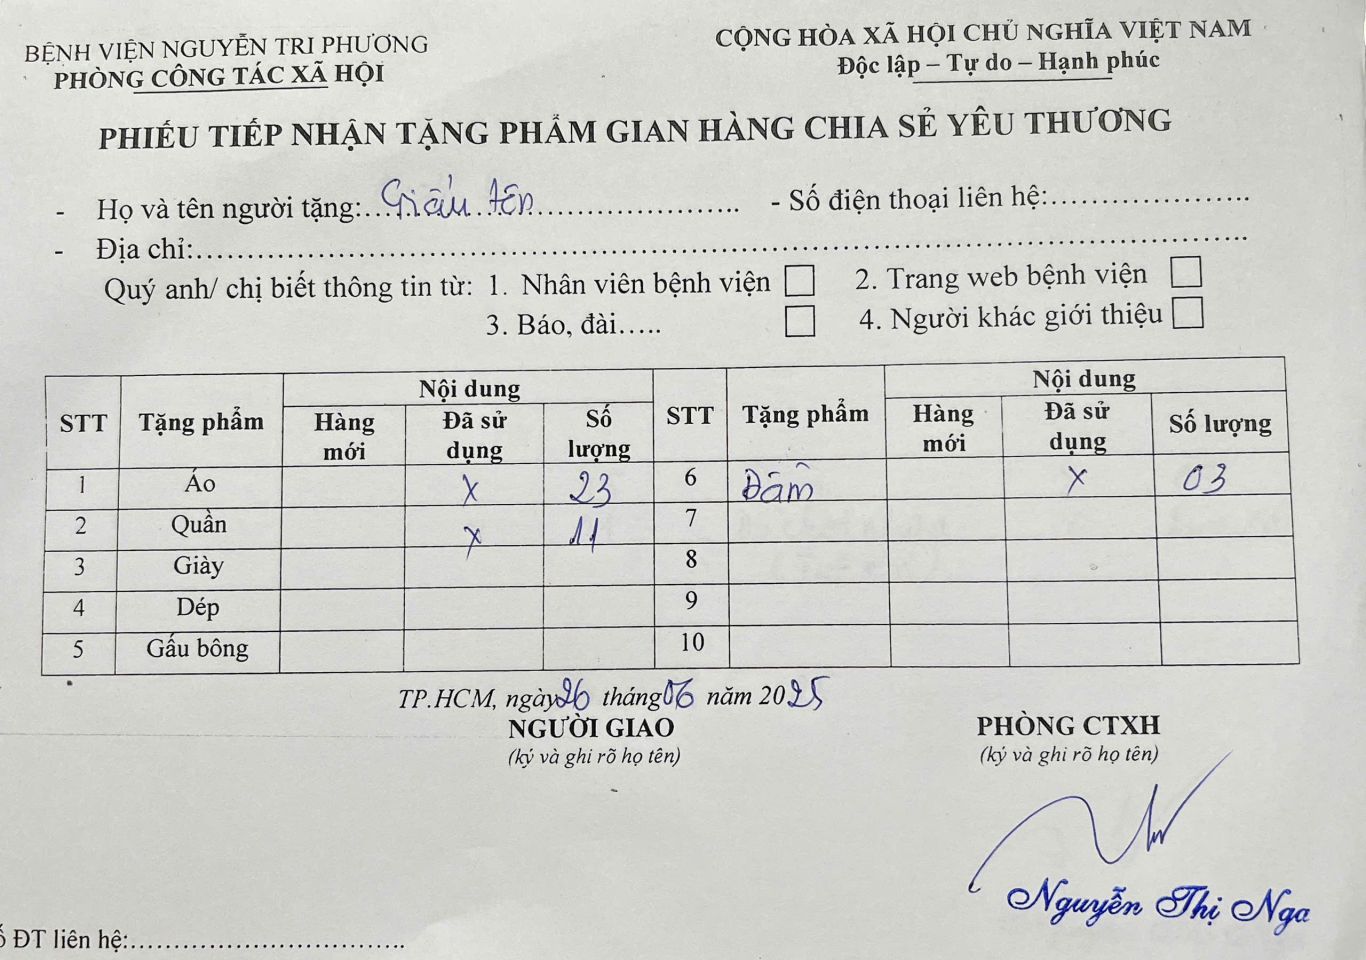 BỆNH VIỆN NGUYỄN TRI PHƯƠNG
PHÒNG CÔNG TÁC XÃ HỘI
CỘNG HÒA XÃ HỘI CHỦ NGHĨA VIỆT NAM
Độc lập – Tự do – Hạnh phúc
PHIẾU TIẾP NHẬN TẶNG PHẨM GIAN HÀNG CHIA SẺ YÊU THƯƠNG
- Họ và tên người tặng:....Giấu tên............................ - Số điện thoại liên hệ:.......................
- Địa chỉ:..........................................................................................................................
Quý anh/ chị biết thông tin từ: 1. Nhân viên bệnh viện □ 2. Trang web bệnh viện □
3. Báo, đài..... □ 4. Người khác giới thiệu □
STT Tặng phẩm Nội dung STT Tặng phẩm Nội dung
Hàng mới Đã sử dụng Số lượng Hàng mới Đã sử dụng Số lượng
1 Áo x 23 6 Đầm x 03
2 Quần x 11 7
3 Giày 8
4 Dép 9
5 Gấu bông 10
TP.HCM, ngày 26 tháng 06 năm 2025
NGƯỜI GIAO
(ký và ghi rõ họ tên)
PHÒNG CTXH
(ký và ghi rõ họ tên)
Nguyễn Thị Nga
ĐT liên hệ:..................................